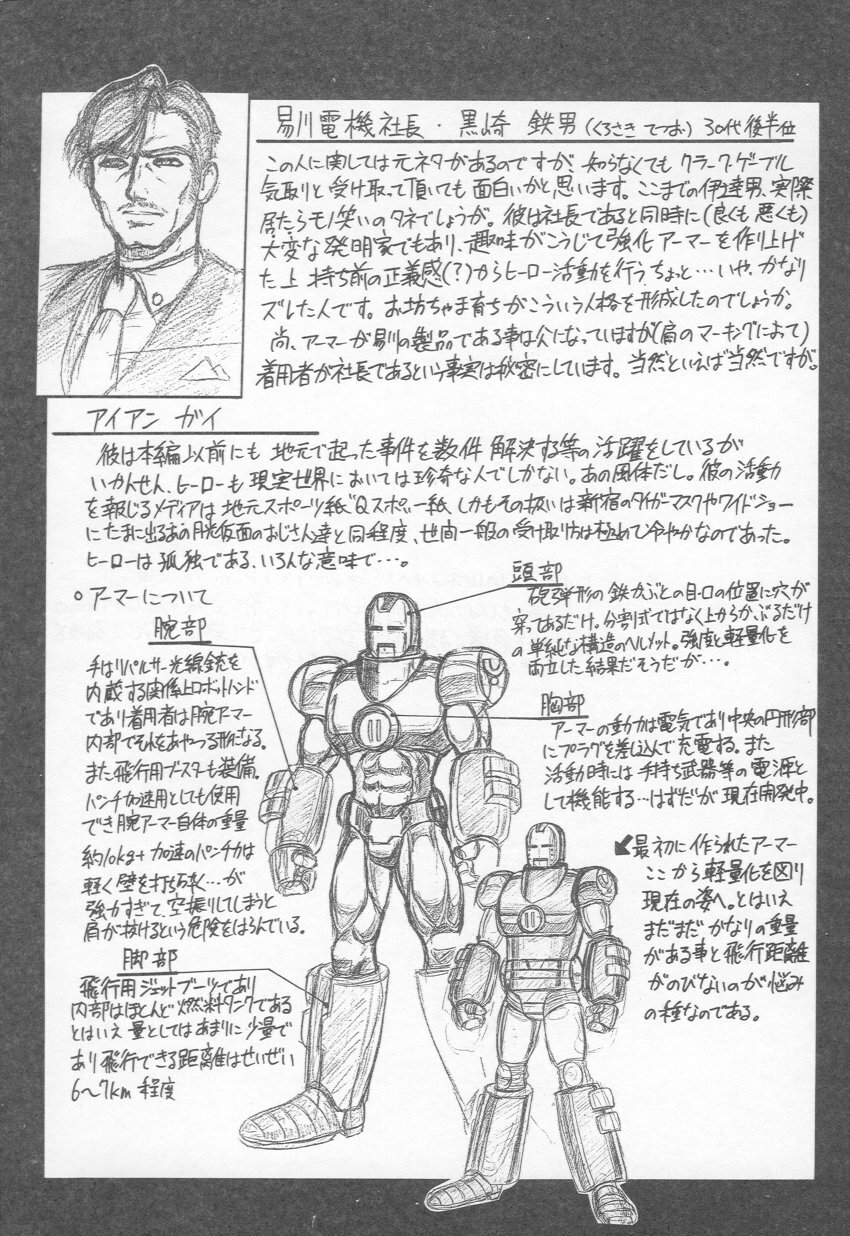 易川電機社長・黒崎 鉄男(くろさき てつお) 30代後半位
この人に関しては元ネタがあるのですが 知らなくても クラーク・ゲーブル
気取りと受け取って頂いても 面白いかと思います。ここまでの伊達男、実際
居たらモノ笑いのタネでしょうが。彼は社長であると同時に(良くも悪くも)
大変な発明家でもあり、趣味がこうじて強化アーマーを作り上げ
た上 持ち前の正義感(?)からヒーロー活動を行うちょっと…いや、かなり
ズレた人です。お坊ちゃま育ちがこういう人格を形成したのでしょうか。
尚、アーマーが易川の製品である事は公になっていますが(肩のマーキングによって)
着用者が社長であるという事実は秘密にしています。当然といえば当然ですが。
アイアン ガイ
彼は本編以前にも 地元で起った事件を数件 解決する等の活躍をしているが
いかんせん、ヒーローも現実世界においては珍奇な人でしかない。あの風体だし。彼の活動
を報じるメディアは 地元スポーツ紙"Qスポ"一紙、しかもその扱いは新宿のタイガーマスクやワイドショー
にたまに出るあの月光仮面のおじさん達と同程度、世間一般の受け取り方は極めて冷やかなのであった。
ヒーローは孤独である、いろんな意味で…。
○アーマーについて
頭部
砲弾形の鉄かぶとの目・口の位置に穴が
穿ってあるだけ。分割式ではなく上からかぶるだけ
の単純な構造のヘルメット。強度と軽量化を
両立した結果だそうだが…。
腕部
手はリパルサー光線銃を
内蔵する関係上ロボットハンド
であり着用者は腕アーマー
内部でそれをあやつる形になる。
また飛行用ブースターも装備。
パンチ加速用としても使用
でき腕アーマー自体の重量
約10kg+加速のパンチ力は
軽く壁を打ち砕く…が
強力すぎて、空振りしてしまうと
肩が抜けるという危険をはらんでいる。
胸部
アーマーの動力は電気であり中央の円形部
にプラグを差し込んで充電する。また
活動時には手持ち武器等の電源と
して機能する…はずだが現在開発中。
最初に作られたアーマー
ここから軽量化を図り
現在の姿へ。とはいえ
まだまだ かなりの重量
がある事と飛行距離
がのびないのが悩み
の種なのである。
脚部
飛行用ジェットブーツであり
内部はほとんど燃料タンクである
とはいえ 量としてはあまりに少量で
あり飛行できる距離はせいぜい
6〜7km 程度